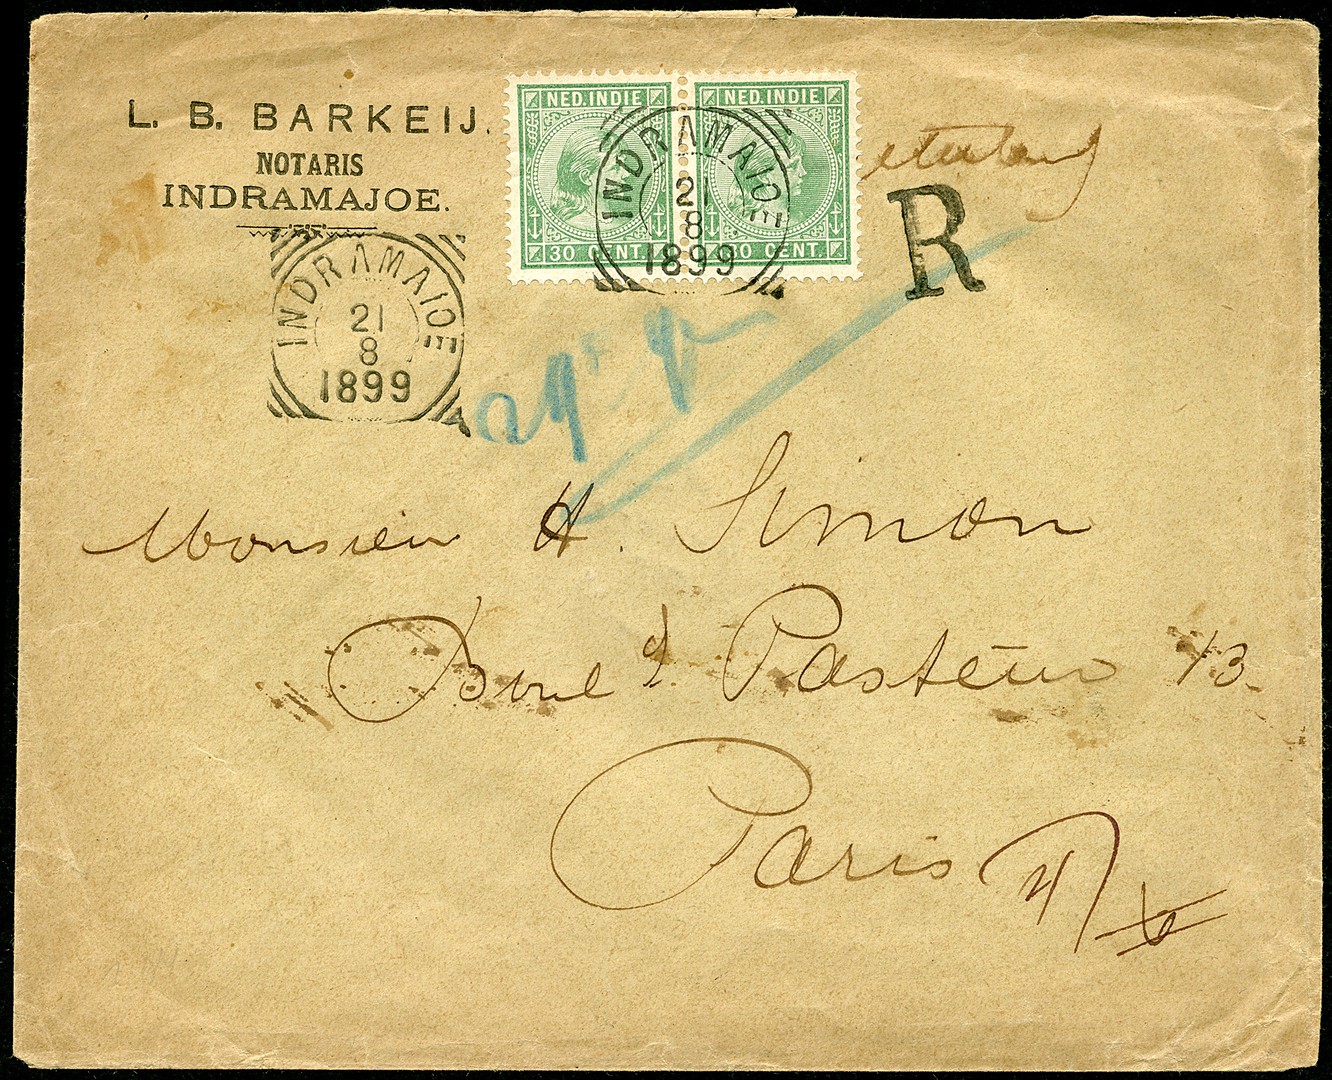 L. B. BARKEIJ.
NOTARIS
INDRAMAJOE.
NED. INDIE NED. INDIE
30 CENT. 30 CENT.
INDRAMAIOE
21
8
1899
R
INDRAMAIOE
21
8
1899
Monsieur H. Simon
Boul d Pasteur 13.
Paris